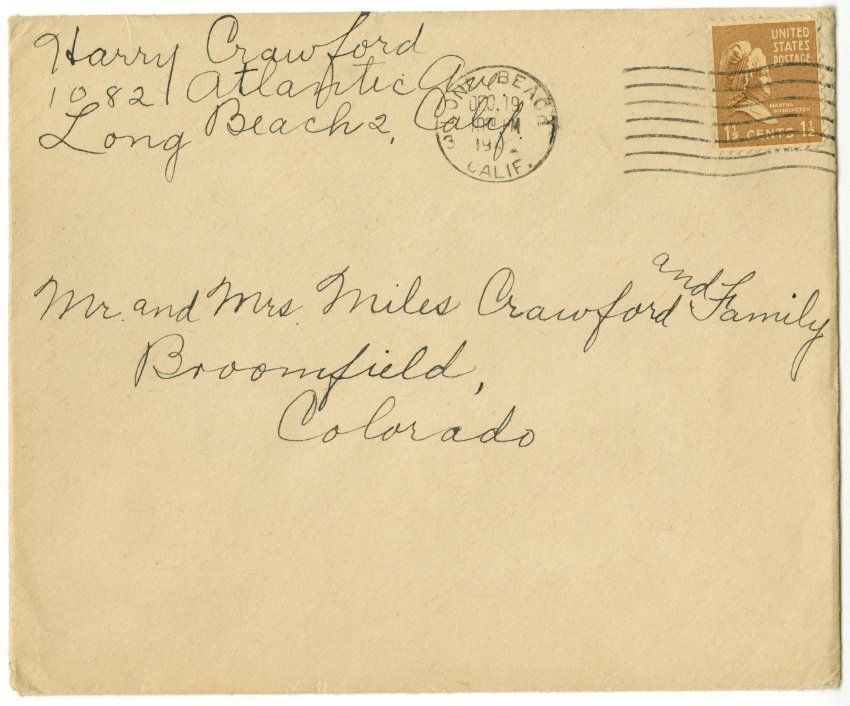 Harry Crawford
1082 Atlantic Ave
Long Beach 2, Calif
LONG BEACH
DEC. 19
CALIF.
UNITED
STATES
POSTAGE
MARTHA
WASHINGTON
1½ CENTS 1½
Mr. and Mrs Miles Crawford and Family
Broomfield,
Colorado